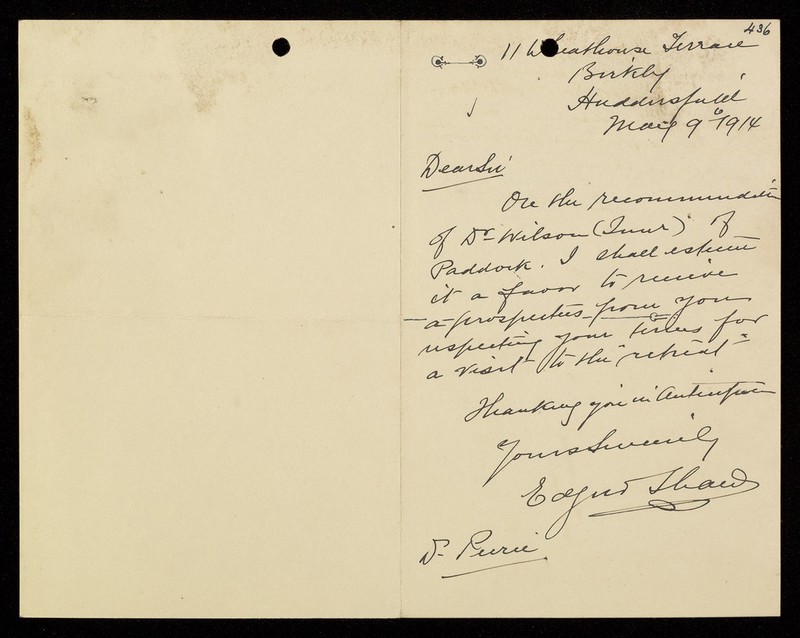 436
11 Wheathouse Terrace
Birkby
Huddersfield
May 9th 1914
Dear Sir
On the recommendation
of Dr Wilson (Junr) of
Paddock. I shall esteem
it a favor to receive
a prospectus from you
respecting your terms for
a visit to the "retreat"
Thanking you in Anticipation
Yours Sincerely
Edgar Shaw
Dr